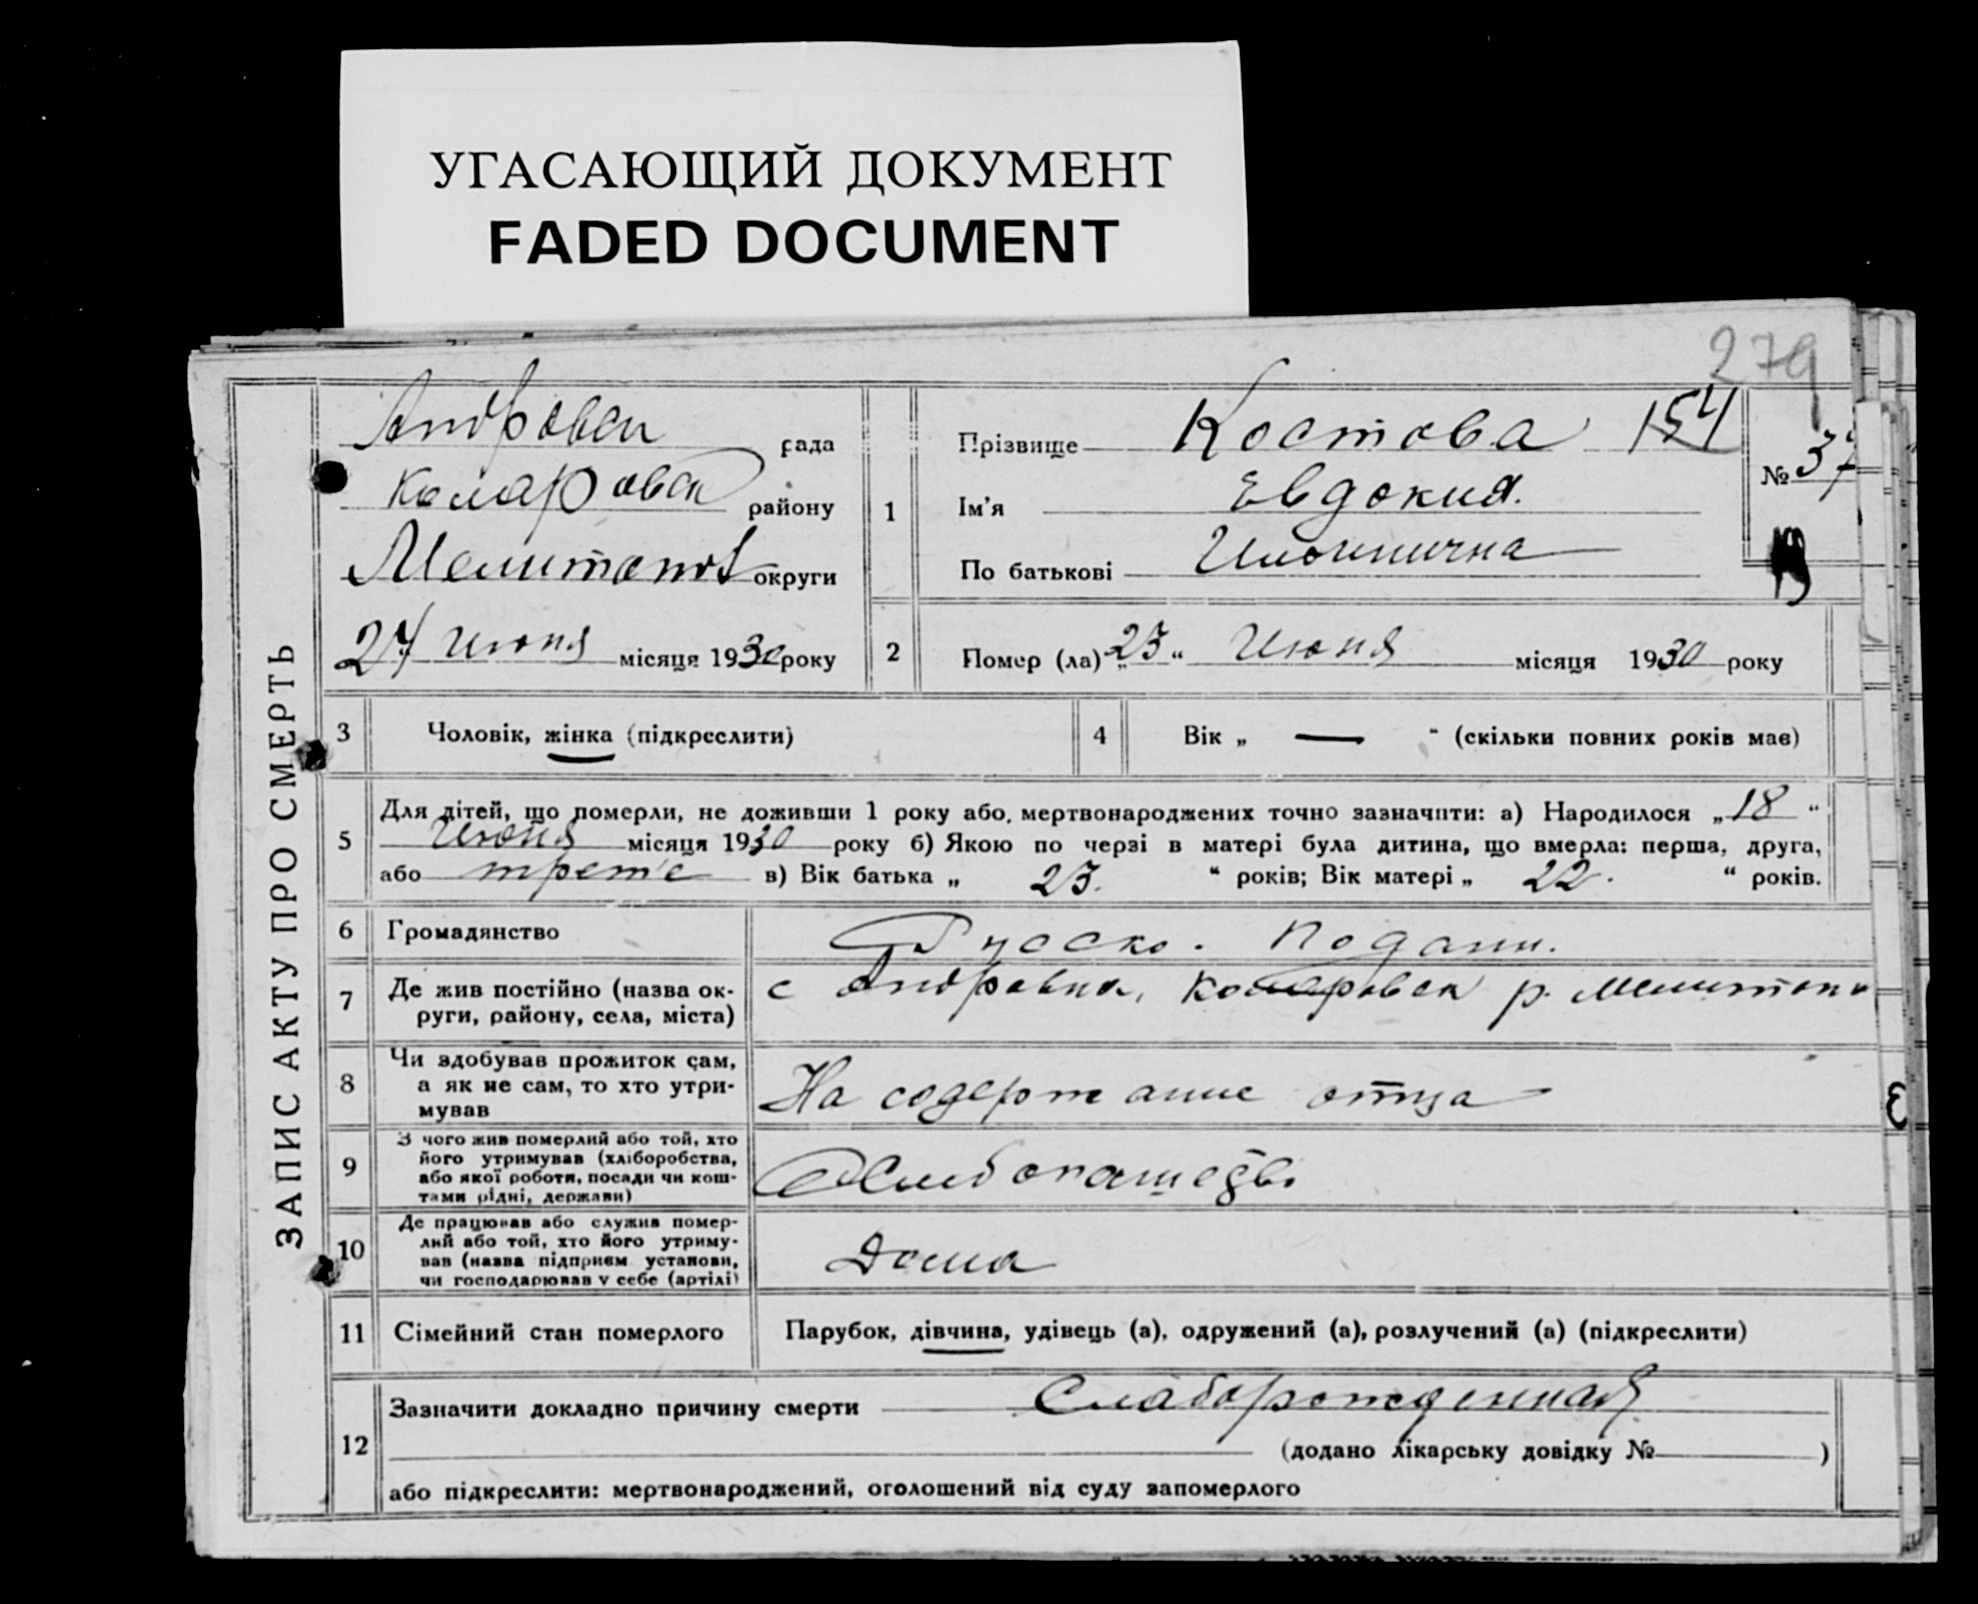 УГАСАЮЩИЙ ДОКУМЕНТ
FADED DOCUMENT
279
ЗАПИС АКТУ ПРО СМЕРТЬ
Андровск рада
Коларовск району
Мелитоп округи
27 Июня місяця 1930 року
1
Прізвище Костова 154
Ім'я Евдокия.
По батькові
№ 37
2
Помер (ла) „23“ Июня місяця 1930 року
3 Чоловік, жінка (підкреслити)
4 Вік „ — “ (скільки повних років має)
5
Для дітей, що померли, не доживши 1 року або мертвонароджених точно зазначити: а) Народилося „18“
Июня місяця 1930 року б) Якою по черзі в матері була дитина, що вмерла: перша, друга,
або третє в) Вік батька „ 23. “ років; Вік матері „ 22. “ років.
6 Громадянство Русско. Подани.
7 Де жив постійно (назва ок-
руги, району, села, міста)
с Андровка, Коларовск р. Мелитоп
8 Чи здобував прожиток сам,
а як не сам, то хто утри-
мував
На содержание отца
9 З чого жив померлий або той, хто
його утримував (хліборобства,
або якої роботи, посади чи кош-
тами рідні, держави)
10 Де працював або служив помер-
лий або той, хто його утриму-
вав (назва підприєм установи,
чи господарював у себе (артілі)
Дома
11 Сімейний стан померлого Парубок, дівчина, удівець (а), одружений (а), розлучений (а) (підкреслити)
12
Зазначити докладно причину смерти Слаборожденная
(додано лікарську довідку № )
або підкреслити: мертвонароджений, оголошений від суду запомерлого